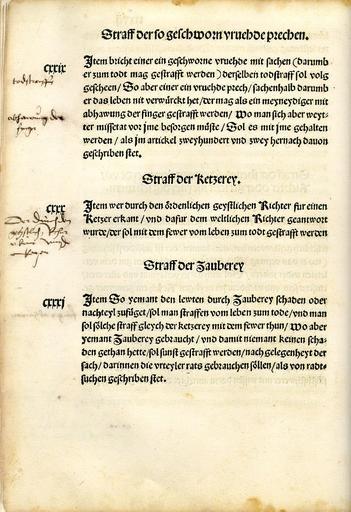 Straff der so geschworn vruehde prechen.
cxxix
Jtem bricht einer ein geschworne vruehde mit sachen (darumb
er zum todt mag gestrafft werden) derselben todstraff sol volg
gescheen/ So aber einer ein vruehde prech/ sachenhalb darumb
er das leben nit verwürckt het/ der mag als ein meyneydiger mit
abhawung der finger gestrafft werden/ Wo man sich aber weyt-
ter missetat vor jme besorgen müste/ Sol es mit jme gehalten
werden/ als jm artickel zweyhundert vnd zwey hernach dauon
geschriben stet.
todtstraff
abhawung der
finger
Straff der Ketzerey.
cxxx
Jtem wer durch den ördenlichen geystlichen Richter für einen
Ketzer erkant/ vnd dafur dem weltlichen Richter geantwort
wurde/ der sol mit dem fewer vom leben zum todt gestrafft werden
Straff der Zauberey
cxxxj
Jtem So yemant den lewten durch Zauberey schaden oder
nachteyl zufüget/ sol man straffen vom leben zum tode/ vnd man
sol sölche straff gleych der ketzerey mit dem fewer thun/ Wo aber
yemant Zauberey gebraucht/ vnd damit niemant keinen scha-
den gethan hette/ sol sunst gestrafft werden/ nach gelegenheyt der
sach/ darinnen die vrteyler rats gebrauchen söllen/ als von radt-
suchen geschriben stet.